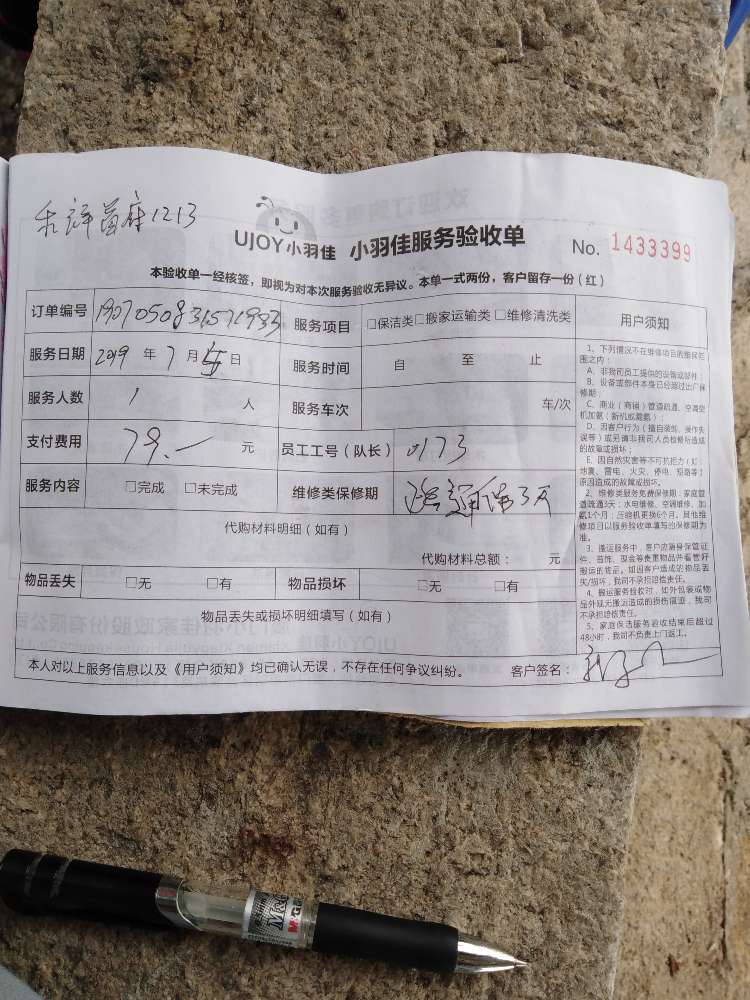 1213
UJOY小羽佳 小羽佳服务验收单 No. 1433399
本验收单一经核签，即视为对本次服务验收无异议。本单一式两份，客户留存一份（红）
订单编号 服务项目 □保洁类□搬家运输类□维修清洗类 用户须知
服务日期 2019 年 7 月 5 日 服务时间 自 至 止
服务人数 1 人 服务车次 车/次
支付费用 79.— 元 员工工号（队长） 0173
服务内容 □完成 □未完成 维修类保修期 3天
代购材料明细（如有）
代购材料总额： 元
物品丢失 □无 □有 物品损坏 □无 □有
物品丢失或损坏明细填写（如有）
本人对以上服务信息以及《用户须知》均已确认无误，不存在任何争议纠纷。 客户签名：
1、下列情况不在维修项目的维保范
围之内：
A、非我司员工提供的设备或部件；
B、设备或部件本身已经超过出厂保
修期；
C、商业（商铺）管道疏通、空调空
机加氨（新机或漏氨）；
D、因客户行为（擅自装卸、操作失
误等）或另请非我司人员检修所造成
的故障或损坏；
E、因自然灾害等不可抗拒力（如：
地震、雷电、火灾、停电、短路等）
原因造成的故障或损坏。
2、维修类服务免费保修期：家庭管
道疏通3天；水电维修、空调维修、加
氨1个月；压缩机更换6个月。其他维
修项目以服务验收单填写的保修期为
准。
3、搬运服务中，客户应随身保管证
件、首饰、现金等贵重物品并看管好
搬运的物品。如因客户造成的物品丢
失/损坏，我司不承担赔偿责任。
4、搬运服务验收时，如外包装或物
品外观无搬运造成的损伤痕迹，我司
不承担赔偿责任。
5、家庭保洁服务验收结束后超过
48小时，我司不负责上门返工。
M&G